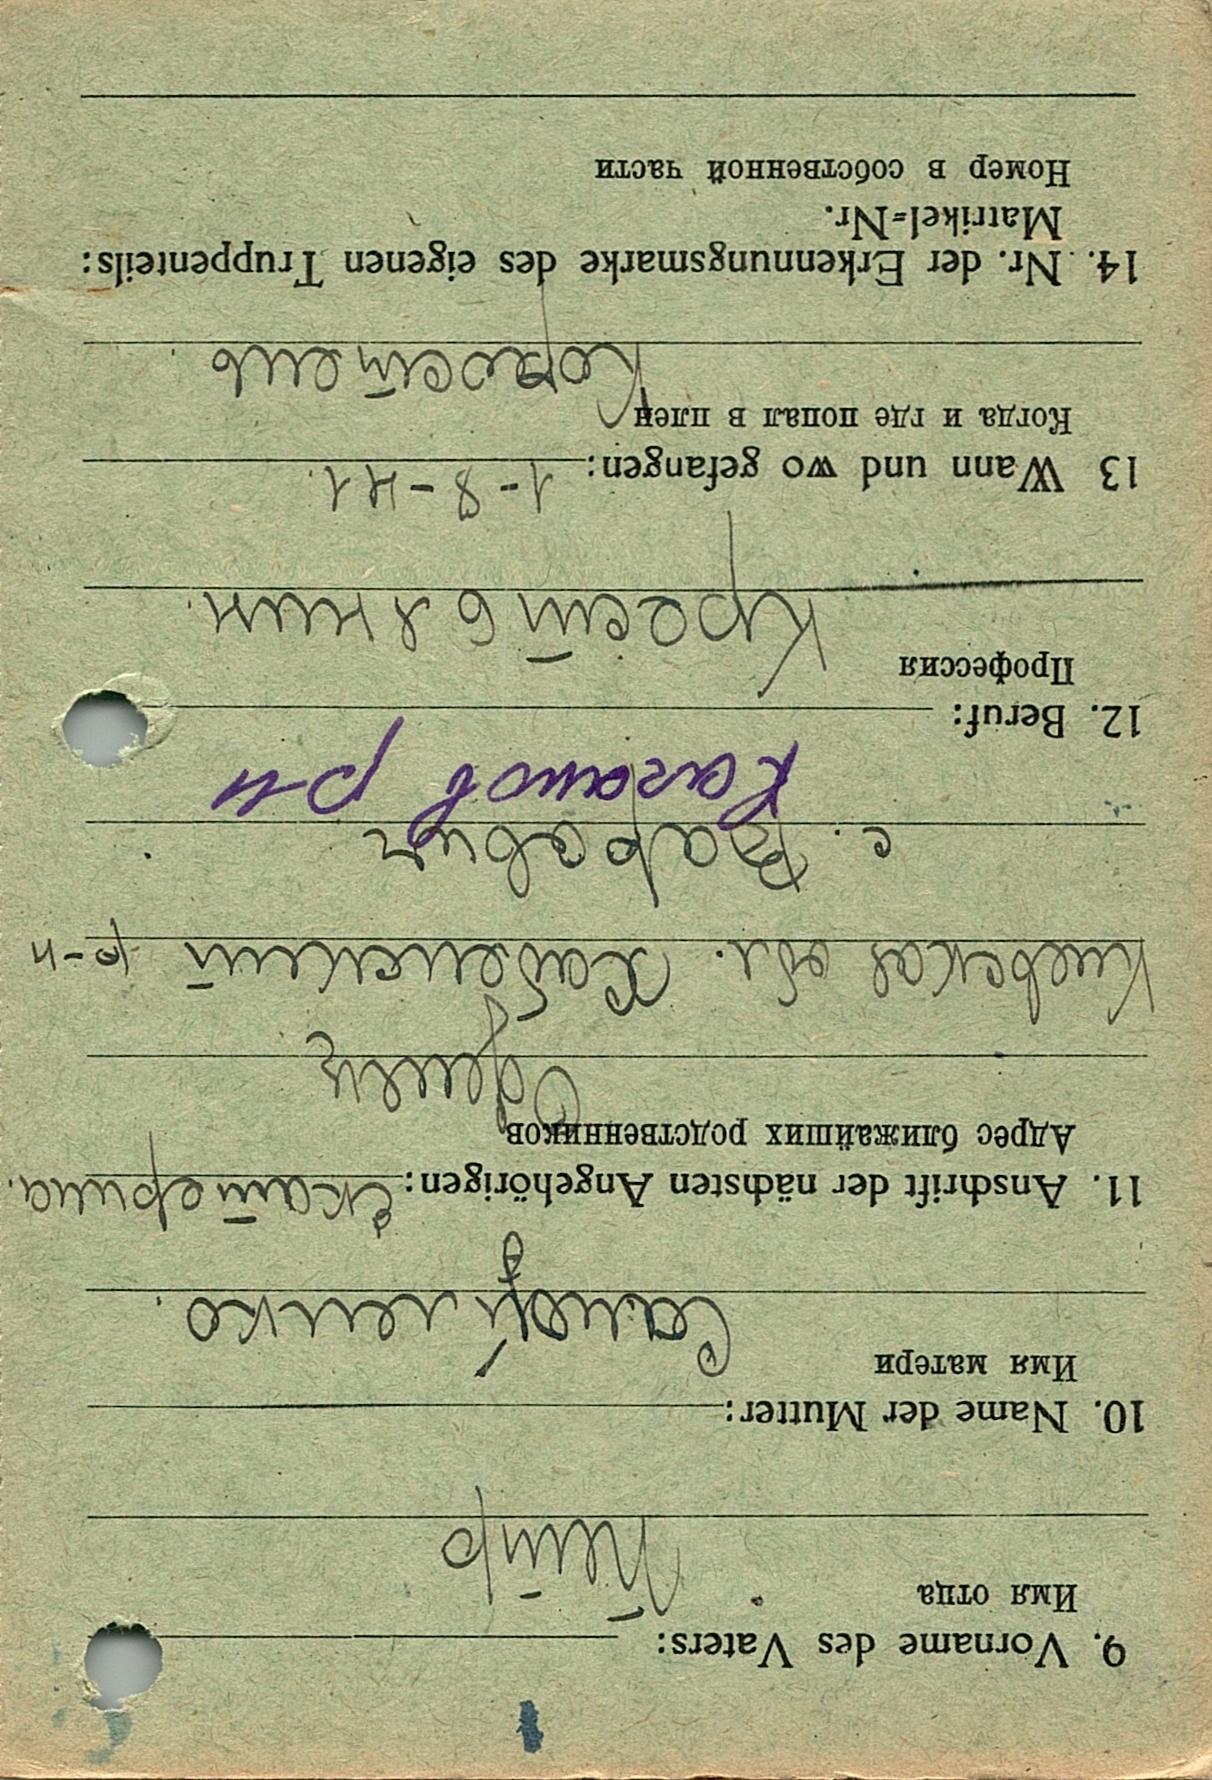 9. Vorname des Vaters:
Имя отца
Петро
10. Name der Mutter:
Имя матери
11. Anschrift der nächsten Angehörigen: Екатерина.
Адрес ближайших родственников
Киевская обл. р-н
с.
р-н
12. Beruf:
Профессия
Крестьянин.
13 Wann und wo gefangen: 1-8-41.
Когда и где попал в плен
14. Nr. der Erkennungsmarke des eigenen Truppenteils:
Matrikel=Nr.
Номер в собственной части